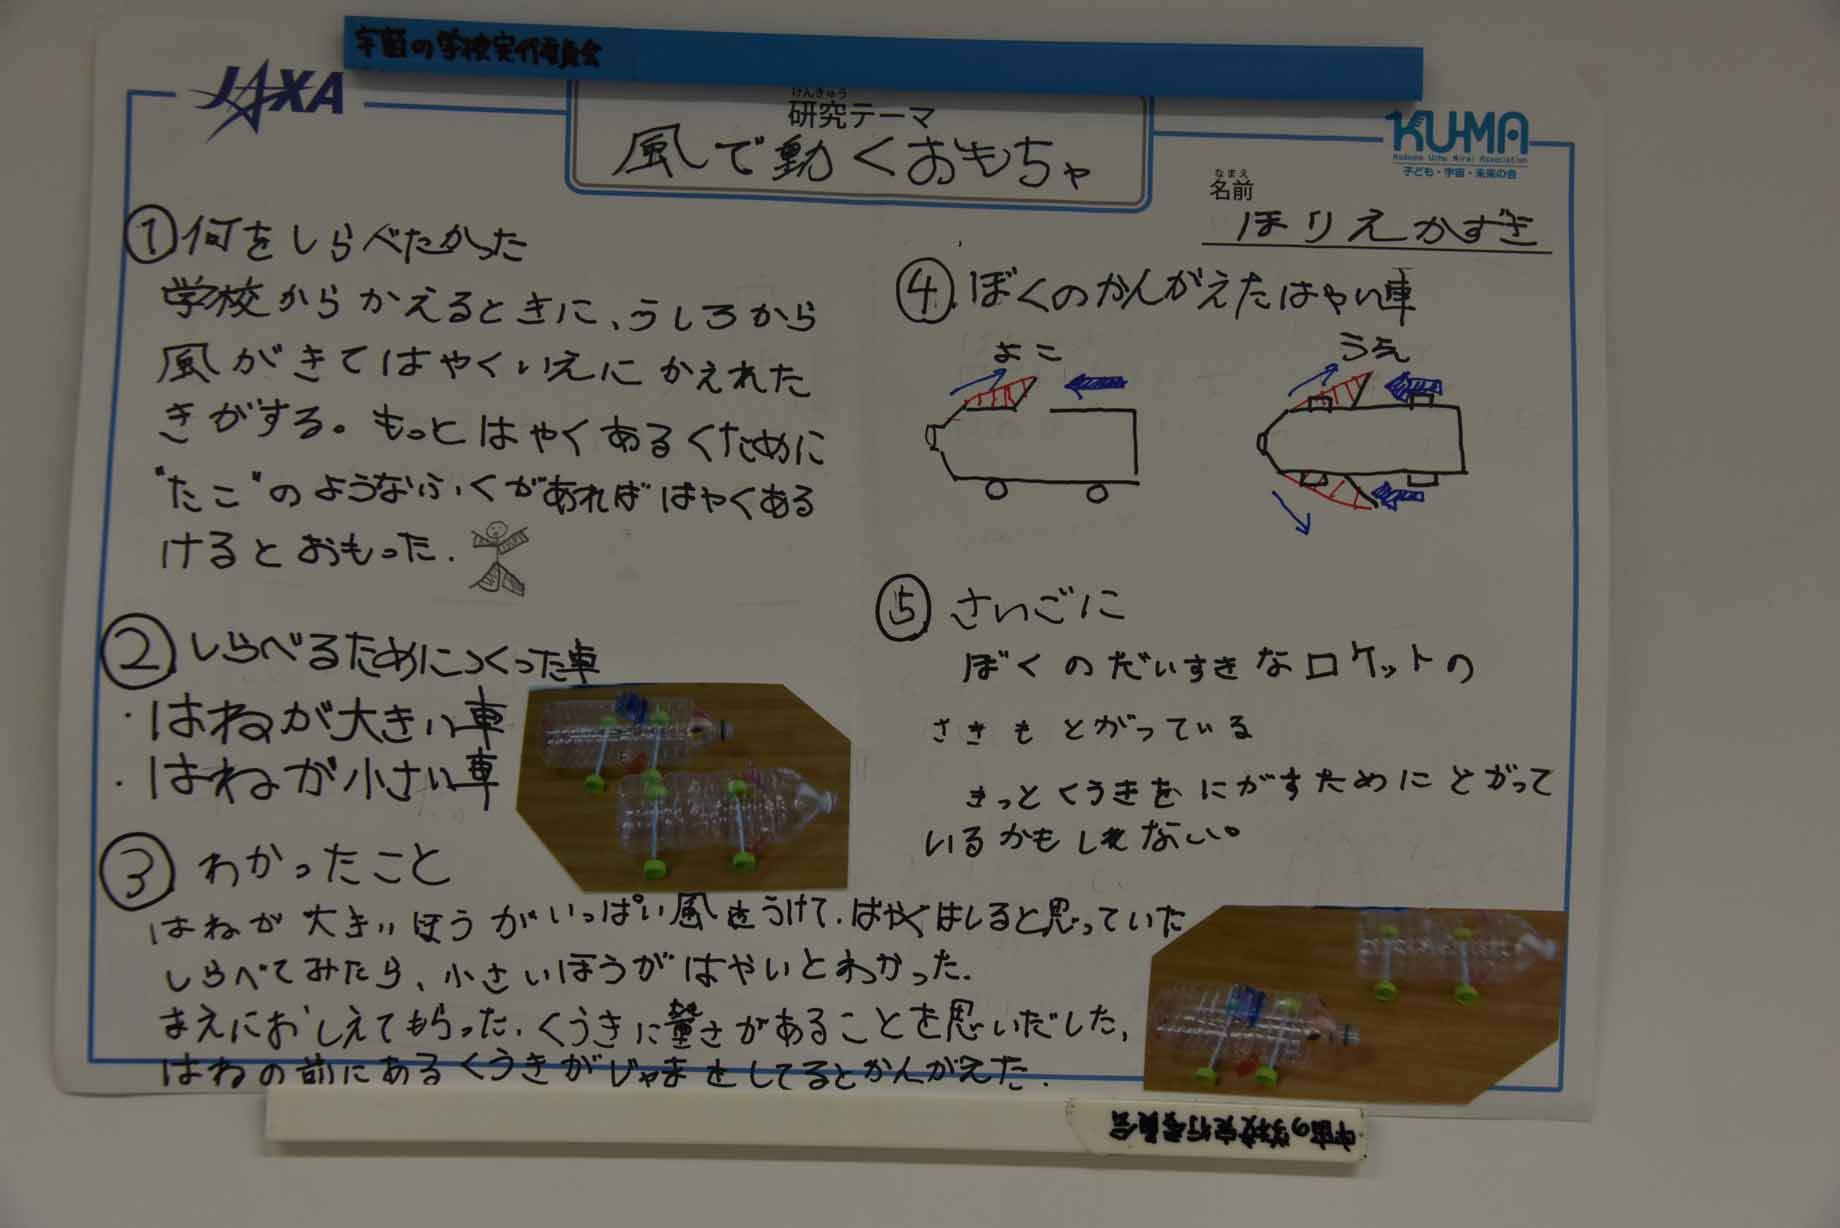 宇宙の学校実行委員会
JAXA
けんきゅう
研究テーマ
風で動くおもちゃ
KU-MA
Kodomo Uchu Mirai Association
子ども・宇宙・未来の会
なまえ
名前
ほりえかずき
① 何をしらべたかった
学校からかえるときに、うしろから
風がきてはやくいえにかえれた
きがする。もっとはやくあるくために
"たこ"のようなふくがあればはやくある
けるとおもった.
② しらべるためにつくった車
・はねが大きい車
・はねが小さい車
③ わかったこと
はねが大きいほうがいっぱい風をうけて.はやくはしると思っていた
しらべてみたら、小さいほうがはやいとわかった.
まえにおしえてもらった.くうきに重さがあることを思いだした,
はねの前にあるくうきがじゃまをしてるとかんがえた.
④ ぼくのかんがえたはやい車
よこ
うえ
⑤ さいごに
ぼくのだいすきなロケットの
さきもとがっている
きっとくうきをにがすためにとがって
いるかもしれない。
宇宙の学校実行委員会